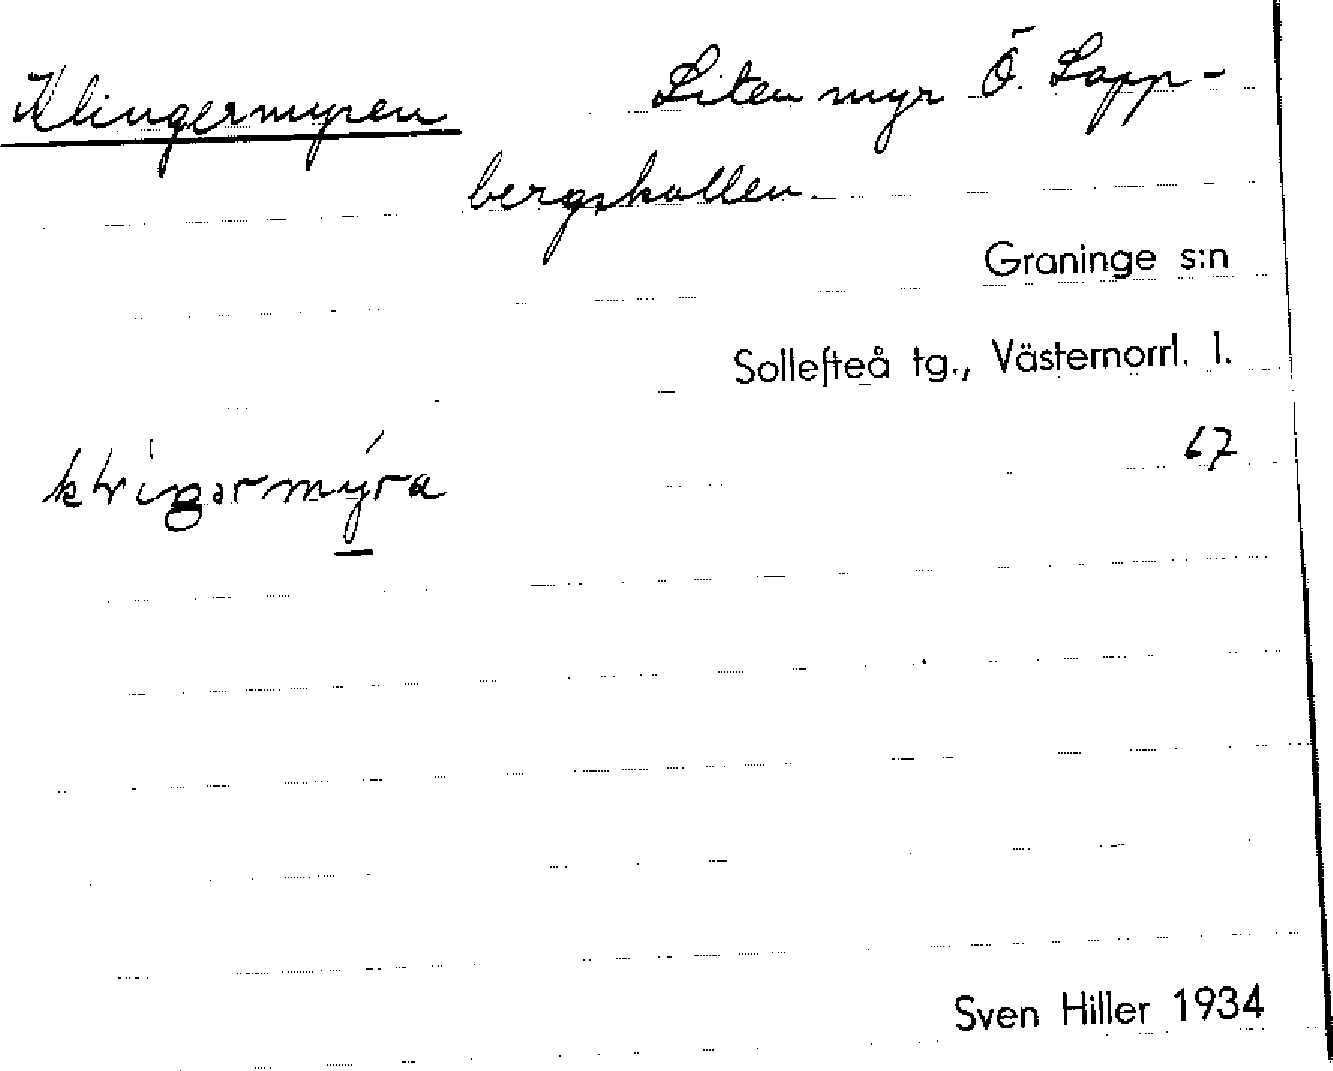 Klingermyren Liten myr Ö. Lapp-
bergskallen.
Graninge s:n
Sollefteå tg., Västernorrl. l.
67
Sven Hiller 1934